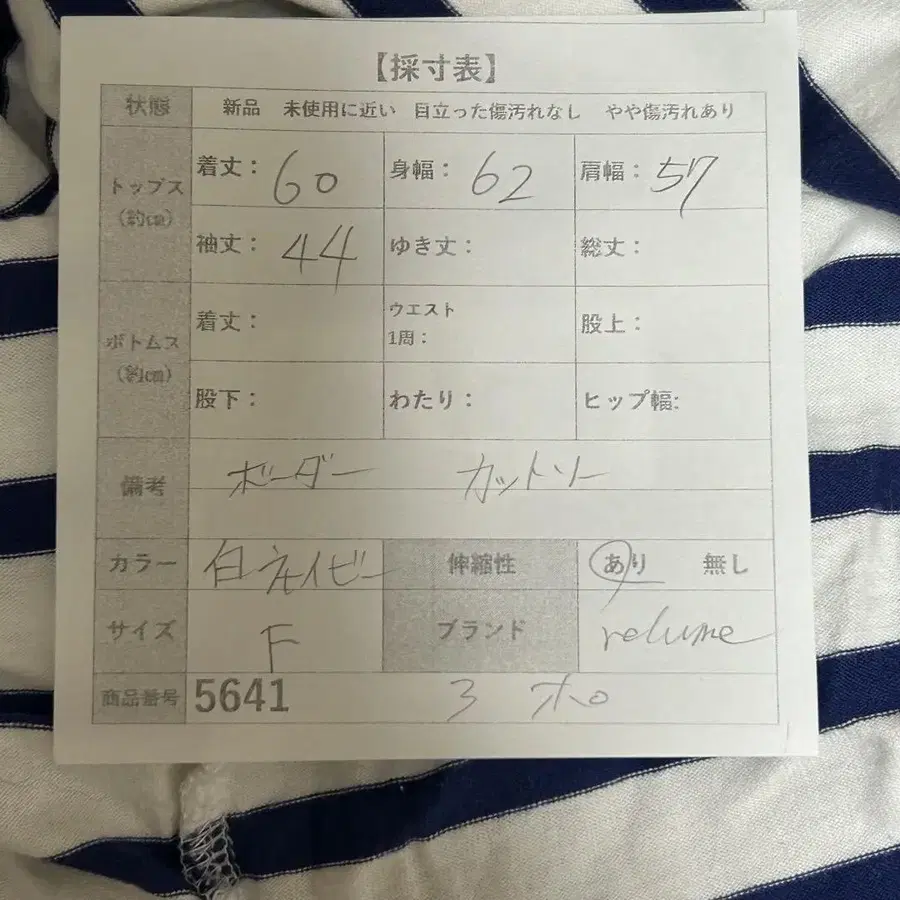 【採寸表】
状態 新品 未使用に近い 目立った傷汚れなし やや傷汚れあり
トップス(約㎝) 着丈: 60 身幅: 62 肩幅: 57
袖丈: 44 ゆき丈: 総丈:
ボトムス(約㎝) 着丈: ウエスト1周: 股上:
股下: わたり: ヒップ幅:
備考 ボーダー カットソー
カラー 白 ネイビー 伸縮性 あり 無し
サイズ F ブランド relume
商品番号 5641 3